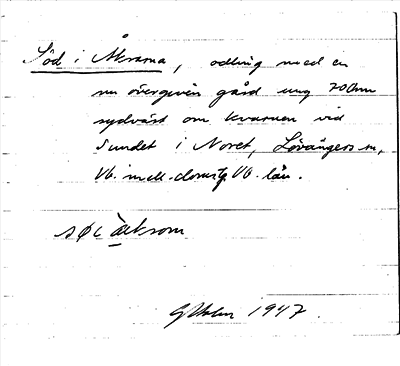 Söd i Åkrarna, odling med en
nu övergiven gård ung 700m
sydväst om kvarnen vid
Sundet i Noret, Lövångers sn,
Vb. mell. doms. Vb. län.
GHolm 1947.